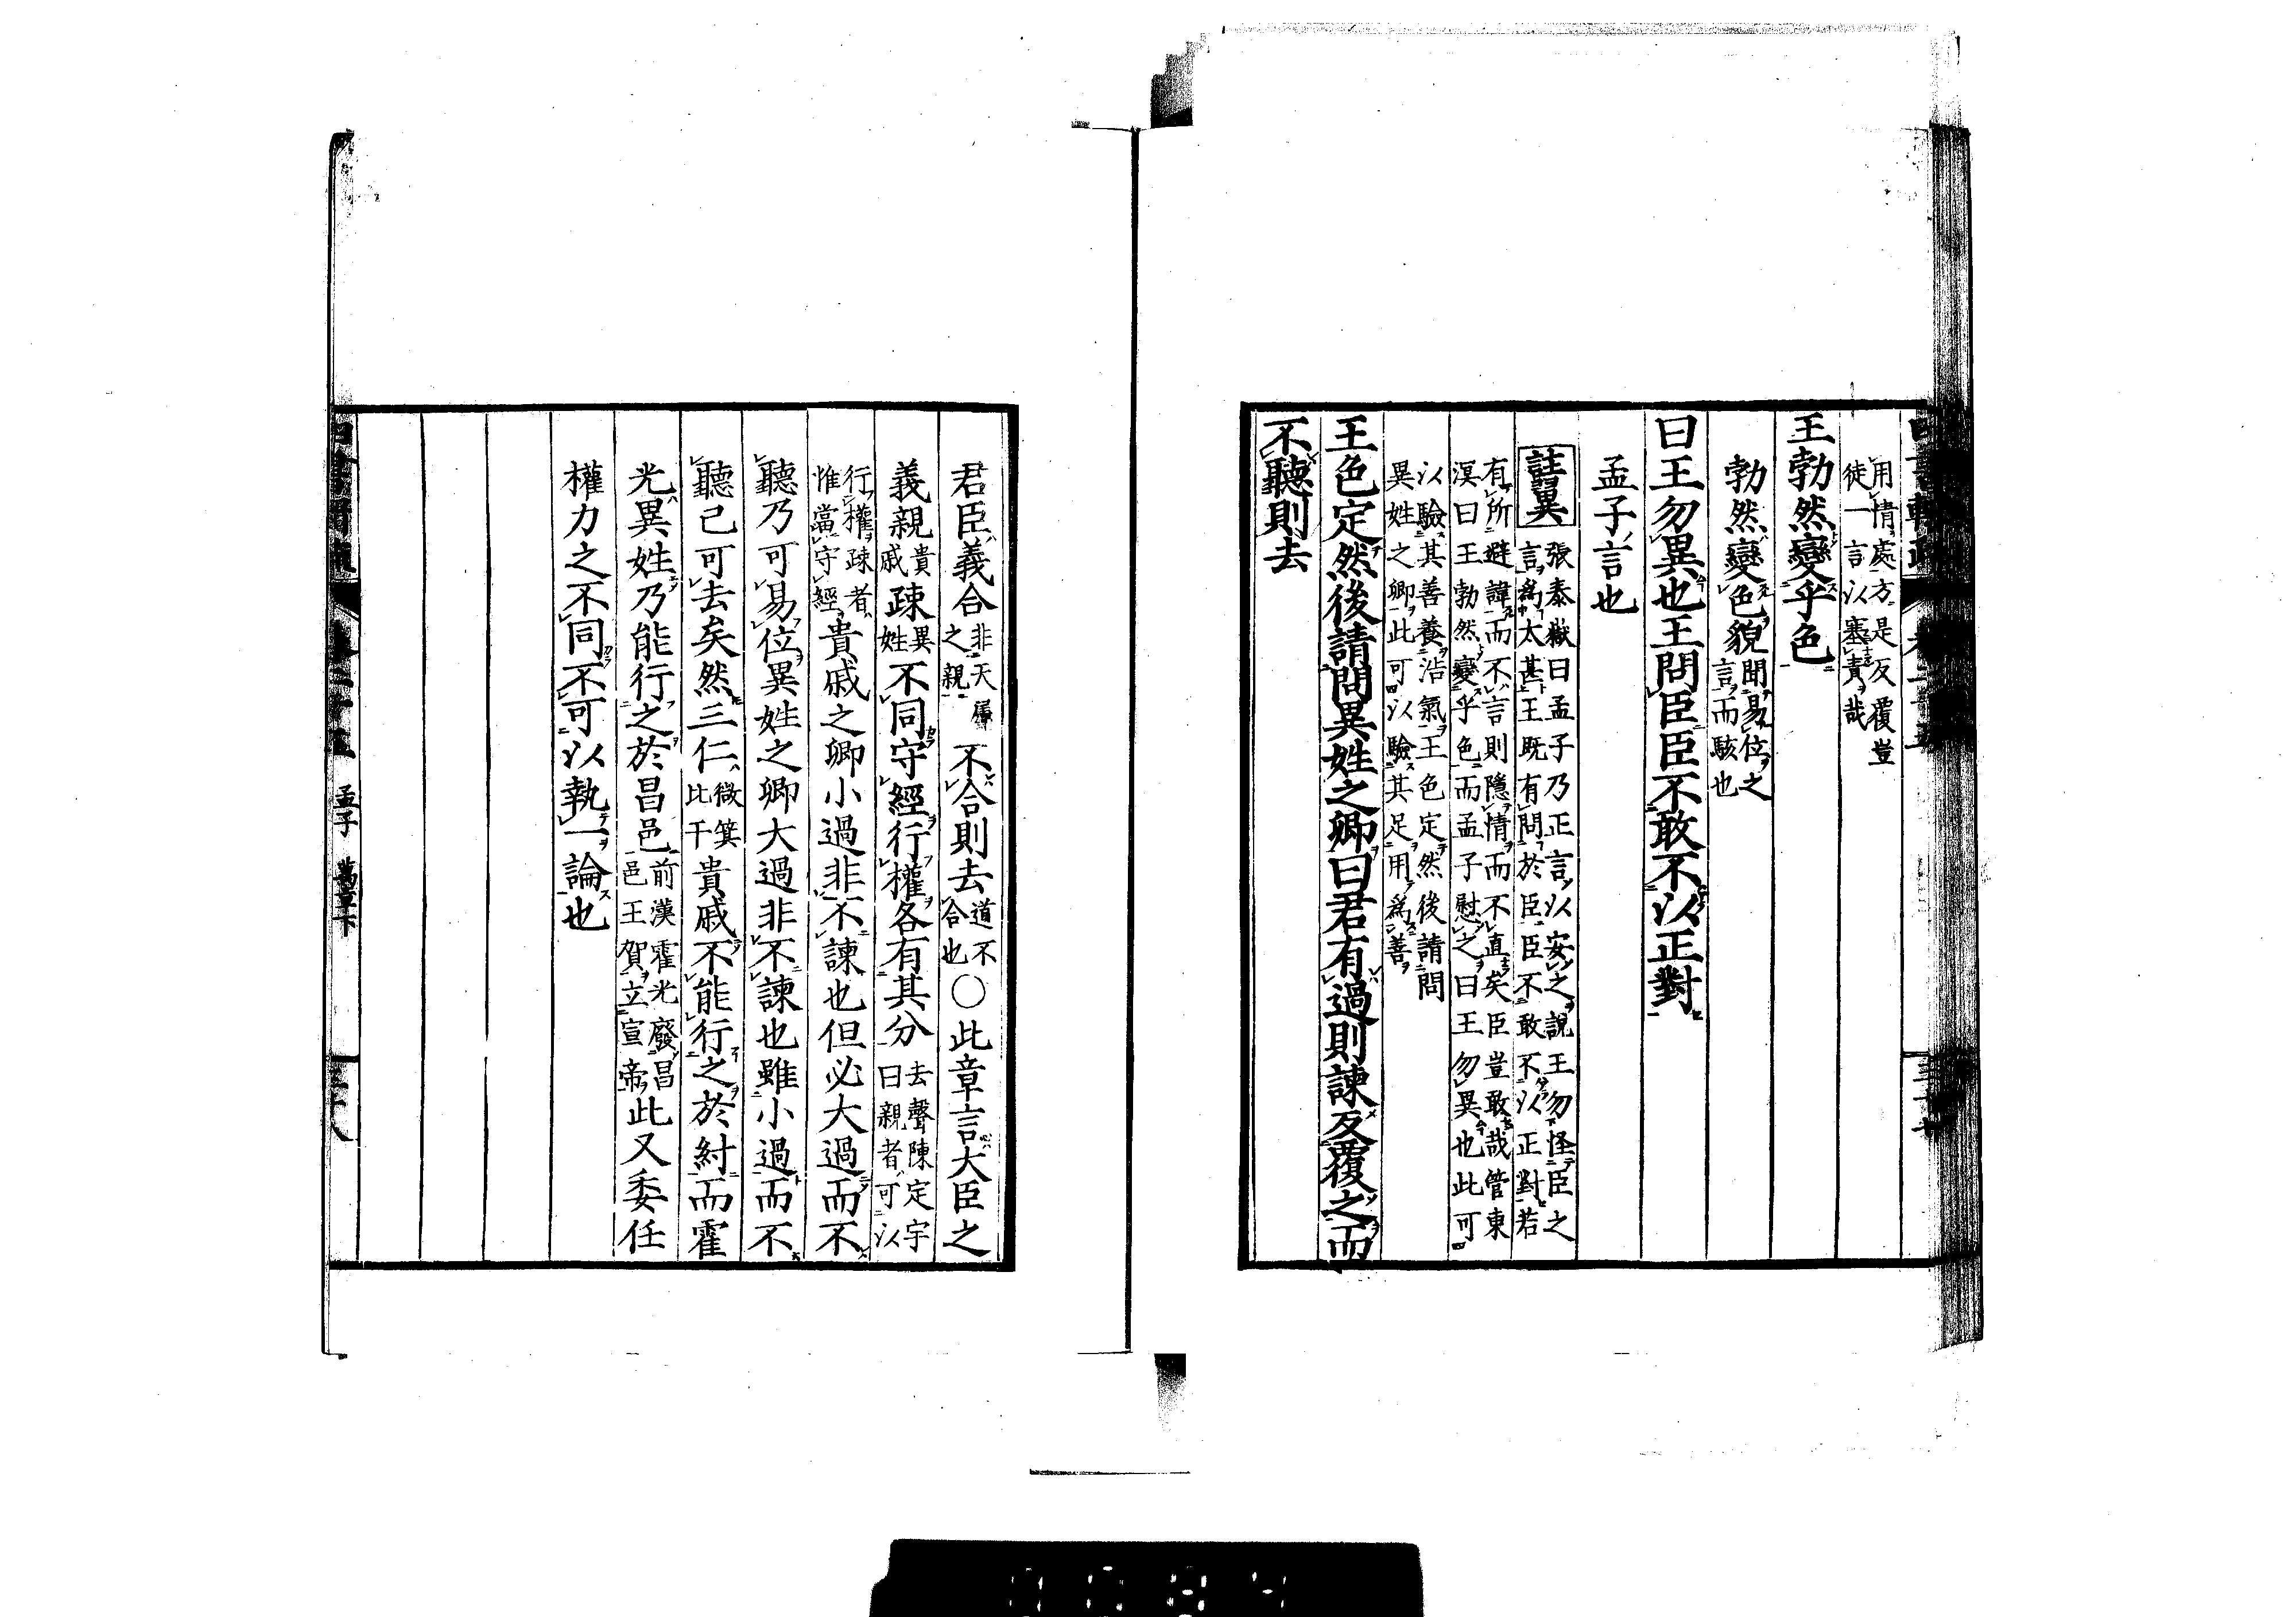 用情處方是反覆豈
徒一言以塞責哉
王勃然變乎色
勃然變色貌
聞易位之
言而駭也
曰王勿異也王問臣臣不敢不以正對
孟子言也
註異
張泰嶽曰孟子乃正言以安之說王勿怪臣之
言爲太甚王既有問於臣臣不敢不以正對若
有所避諱而不言則隱情而不直矣臣豈敢哉管東
溟曰王勃然變乎色而孟子慰之曰王勿異也此可
以驗其善養浩氣王色定然後請問
異姓之卿此可以驗其足用爲善
王色定然後請問異姓之卿曰君有過則諫反覆之而
不聽則去
君臣義合
非天屬
之親
不合則去
道不
合也
○此章言大臣之
義親
貴
戚
疎
異
姓
不同守經行權各有其分
去聲陳定宇
曰親者可以
行權疎者
惟當守經
貴戚之卿小過非不諫也但必大過而不
聽乃可易位異姓之卿大過非不諫也雖小過而不
聽已可去矣然三仁
微箕
比干
貴戚不能行之於紂而霍
光異姓乃能行之於昌邑
前漢霍光廢昌
邑王賀立宣帝
此又委任
權力之不同不可以執一論也
孟子 萬章下